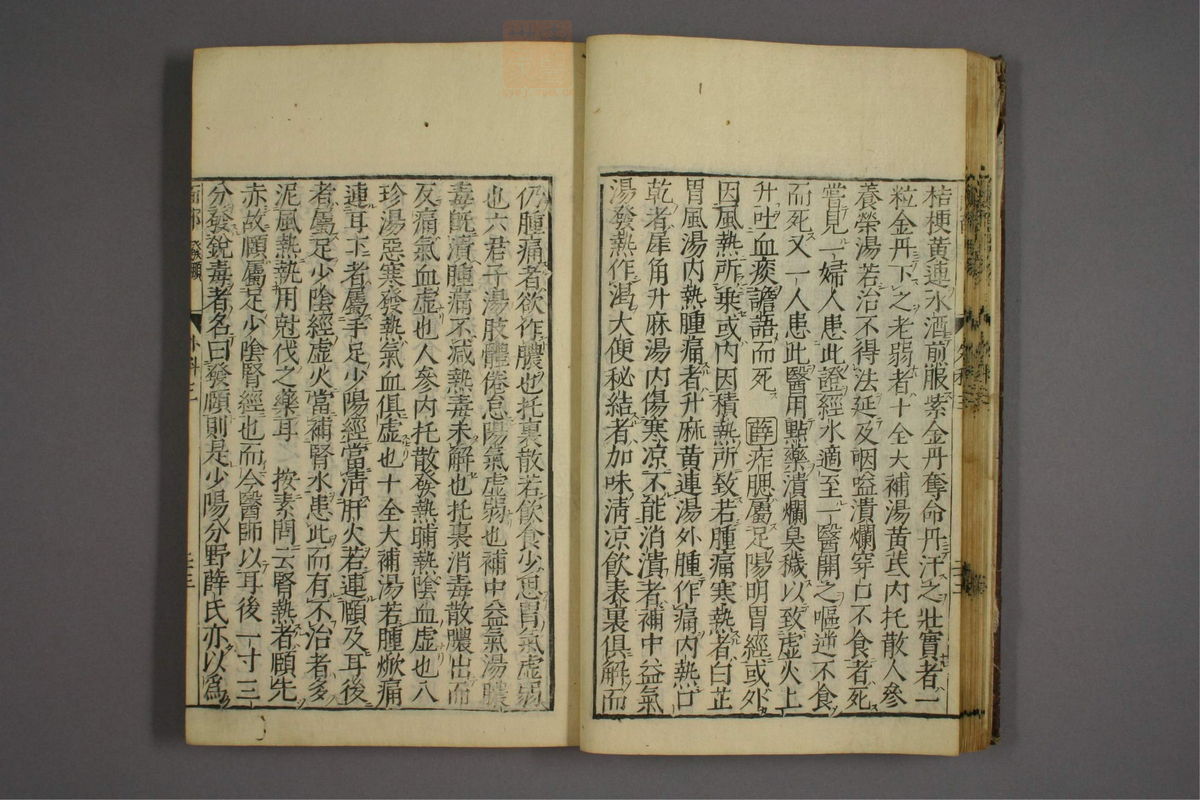 桔梗黄連水酒煎服紫金丹奪命丹汗之壯實者一
粒金丹下之老弱者十全大補湯黄芪内托散人參
養榮湯若治不得法延及咽嗌潰爛穿口不食者死
嘗見一婦人患此證經水適至一醫開之嘔逆不食
而死又一人患此醫用點藥潰爛臭穢以致虚火上
升吐血痰譫語而死 薛 痄腮屬足陽明胃經或外
因風熱所乗或内因積熱所致若腫痛寒熱者白芷
胃風湯内熱腫痛者升麻黄連湯外腫作痛内熱口
乾者犀角升麻湯内傷寒凉不能消潰者補中益氣
湯發熱作渇大便秘結者加味清凉飲表裏俱解而
仍腫痛者欲作膿也托裏散若飲食少思胃氣虚弱
也六君子湯肢體倦怠陽氣虚弱也補中益氣湯膿
毒旣潰腫痛不減熱毒未解也托裏消毒散膿出而
反痛氣血虚也人參内托散發熱晡熱陰血虚也八
珍湯惡寒發熱氣血俱虚也十全大補湯若腫焮痛
連耳下者屬手足少陽經當清肝火若連頤及耳後
者屬足少陰經虚火當補腎水患此而有不治者多
泥風熱執用尅伐之藥耳 按素問云腎熱者頤先
赤故頤屬足少陰腎經也而今醫師以耳後一寸三
分發銳毒者名曰發頤則是少陽分野薛氏亦以爲
面部 發頤 外科七